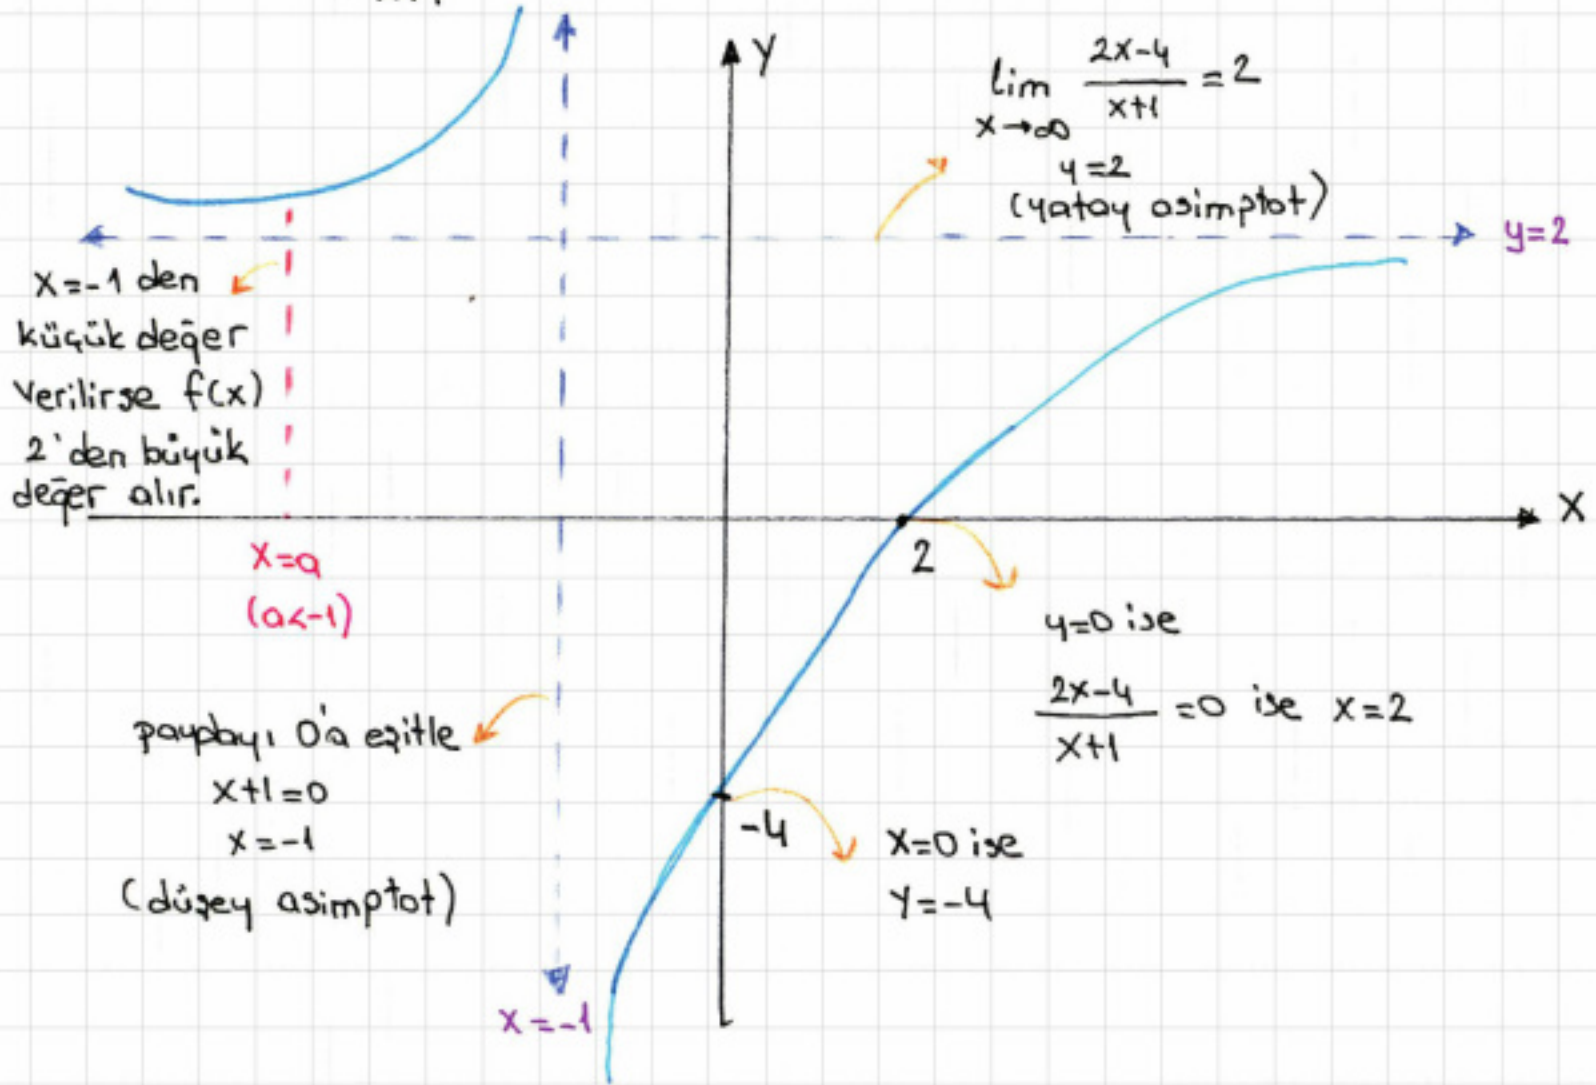 Y
lim 2x-4 / x+1 = 2
x→∞
y=2
(yatay asimptot)
y=2
x=-1 den
küçük değer
verilirse f(x)
2'den büyük
değer alır.
X
x=a
(a<-1)
2
y=0 ise
2x-4 / x+1 = 0 ise x=2
paydayı 0'a eşitle
x+1=0
x=-1
(düşey asimptot)
-4
x=0 ise
y=-4
x=-1